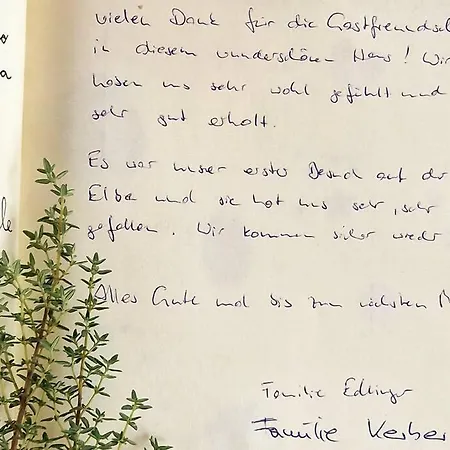 vielen Dank für die Gastfreundsch
in diesem wunderschönen Haus! Wir
haben uns sehr wohl gefühlt und
sehr gut erholt.
Es war unser erster Besuch auf der
Elba und sie hat uns sehr, sehr
gefallen. Wir kommen sicher wieder
Alles Gute und bis zum nächsten M
Familie Edlinger
Familie Kerber